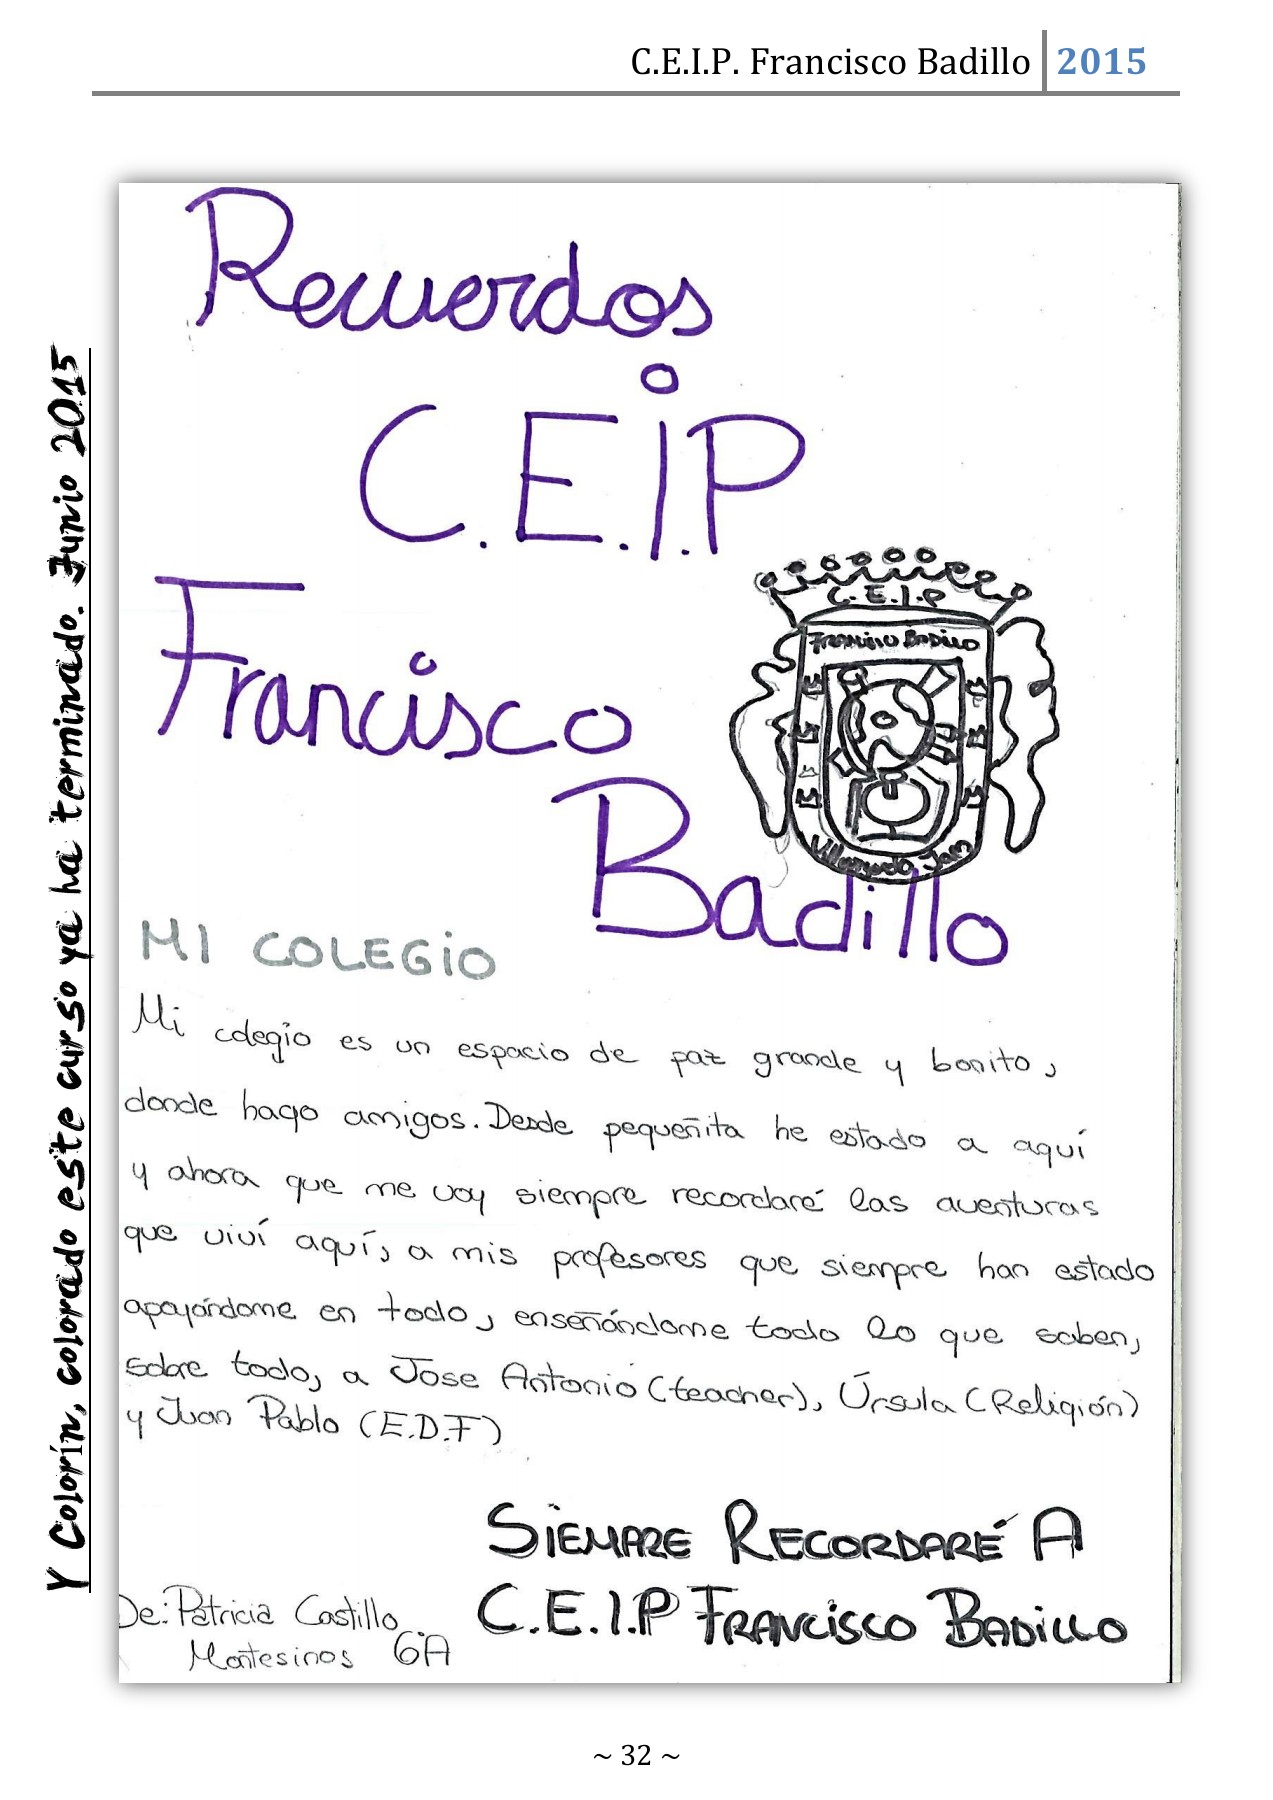 C.E.I.P. Francisco Badillo 2015
Recuerdos
C.E.I.P
Francisco
Badillo
C.E.I.P
Francisco Badillo
MI COLEGIO
Mi colegio es un espacio de paz grande y bonito,
donde hago amigos. Desde pequeñita he estado a aquí
y ahora que me voy siempre recordaré las aventuras
que viví aquí, a mis profesores que siempre han estado
apoyándome en todo, enseñándome todo lo que saben,
sobre todo, a Jose Antonio (teacher), Úrsula (Religión)
y Juan Pablo (E.D.F)
SIEMPRE RECORDARÉ A
C.E.I.P FRANCISCO BADILLO
De: Patricia Castillo
Montesinos 6A
Y Colorín, colorado este curso ya ha terminado. Junio 2015
~ 32 ~